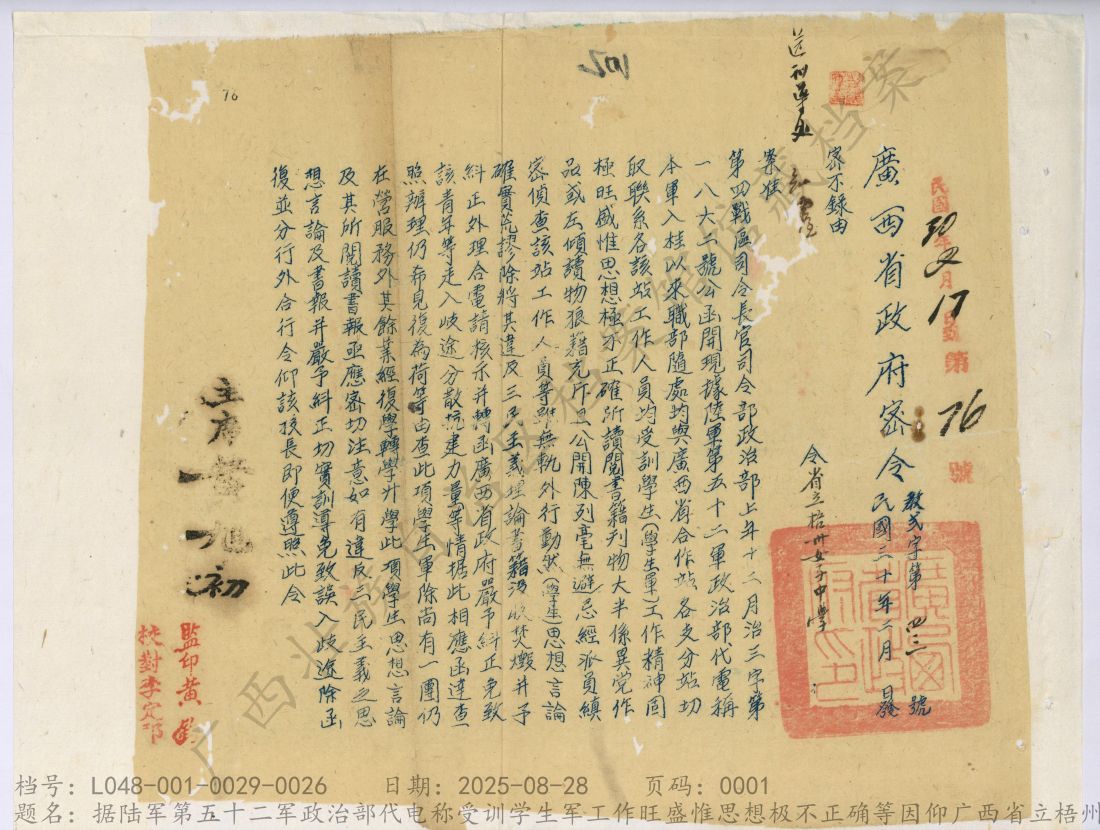 廣西省政府密令
教弍字第四三號
民國二十年二月 日發
令省立梧州女子中學
密不錄由
案准
第四戰區司令長官司令部政治部上年十二月治三字第
一八六二號公函開現據陸軍第五十二軍政治部代電稱
本軍入桂以來職部隨處均與廣西省合作站各支分站切
取聯系各該站工作人員均受訓學生(學生軍)工作精神固
極旺盛惟思想極不正確所讀閱書籍刊物大半係異党作
品或左傾讀物狼籍充斥且公開陳列毫無避忌經派員縝
密偵查該站工作人員等雖無軌外行動然(學生)思想言論
確實荒謬除將其違反三民主義理論書籍沒收焚燬并予
糾正外理合電請核示并轉函廣西省政府嚴予糾正免致
該青年等走入歧途分散抗建力量等情据此相應函達查
照辦理仍希見復為荷等由查此項學生軍除尚有一團仍
在營服務外其餘業經復學轉學升學此項學生思想言論
及其所閱讀書報亟應密切注意如有違反三民主義之思
想言論及書報并嚴予糾正切實訓導免致誤入歧途除函
復並分行外合行令仰該校長即便遵照此令
主席黃旭初
監印黃
校對李定邛
民國 年 月 17 日
第 76 號
76
广西壮族自治区档案馆馆藏档案
档号: L048-001-0029-0026 日期: 2025-08-28 页码: 0001
题名: 据陆军第五十二军政治部代电称受训学生军工作旺盛惟思想极不正确等因仰广西省立梧州